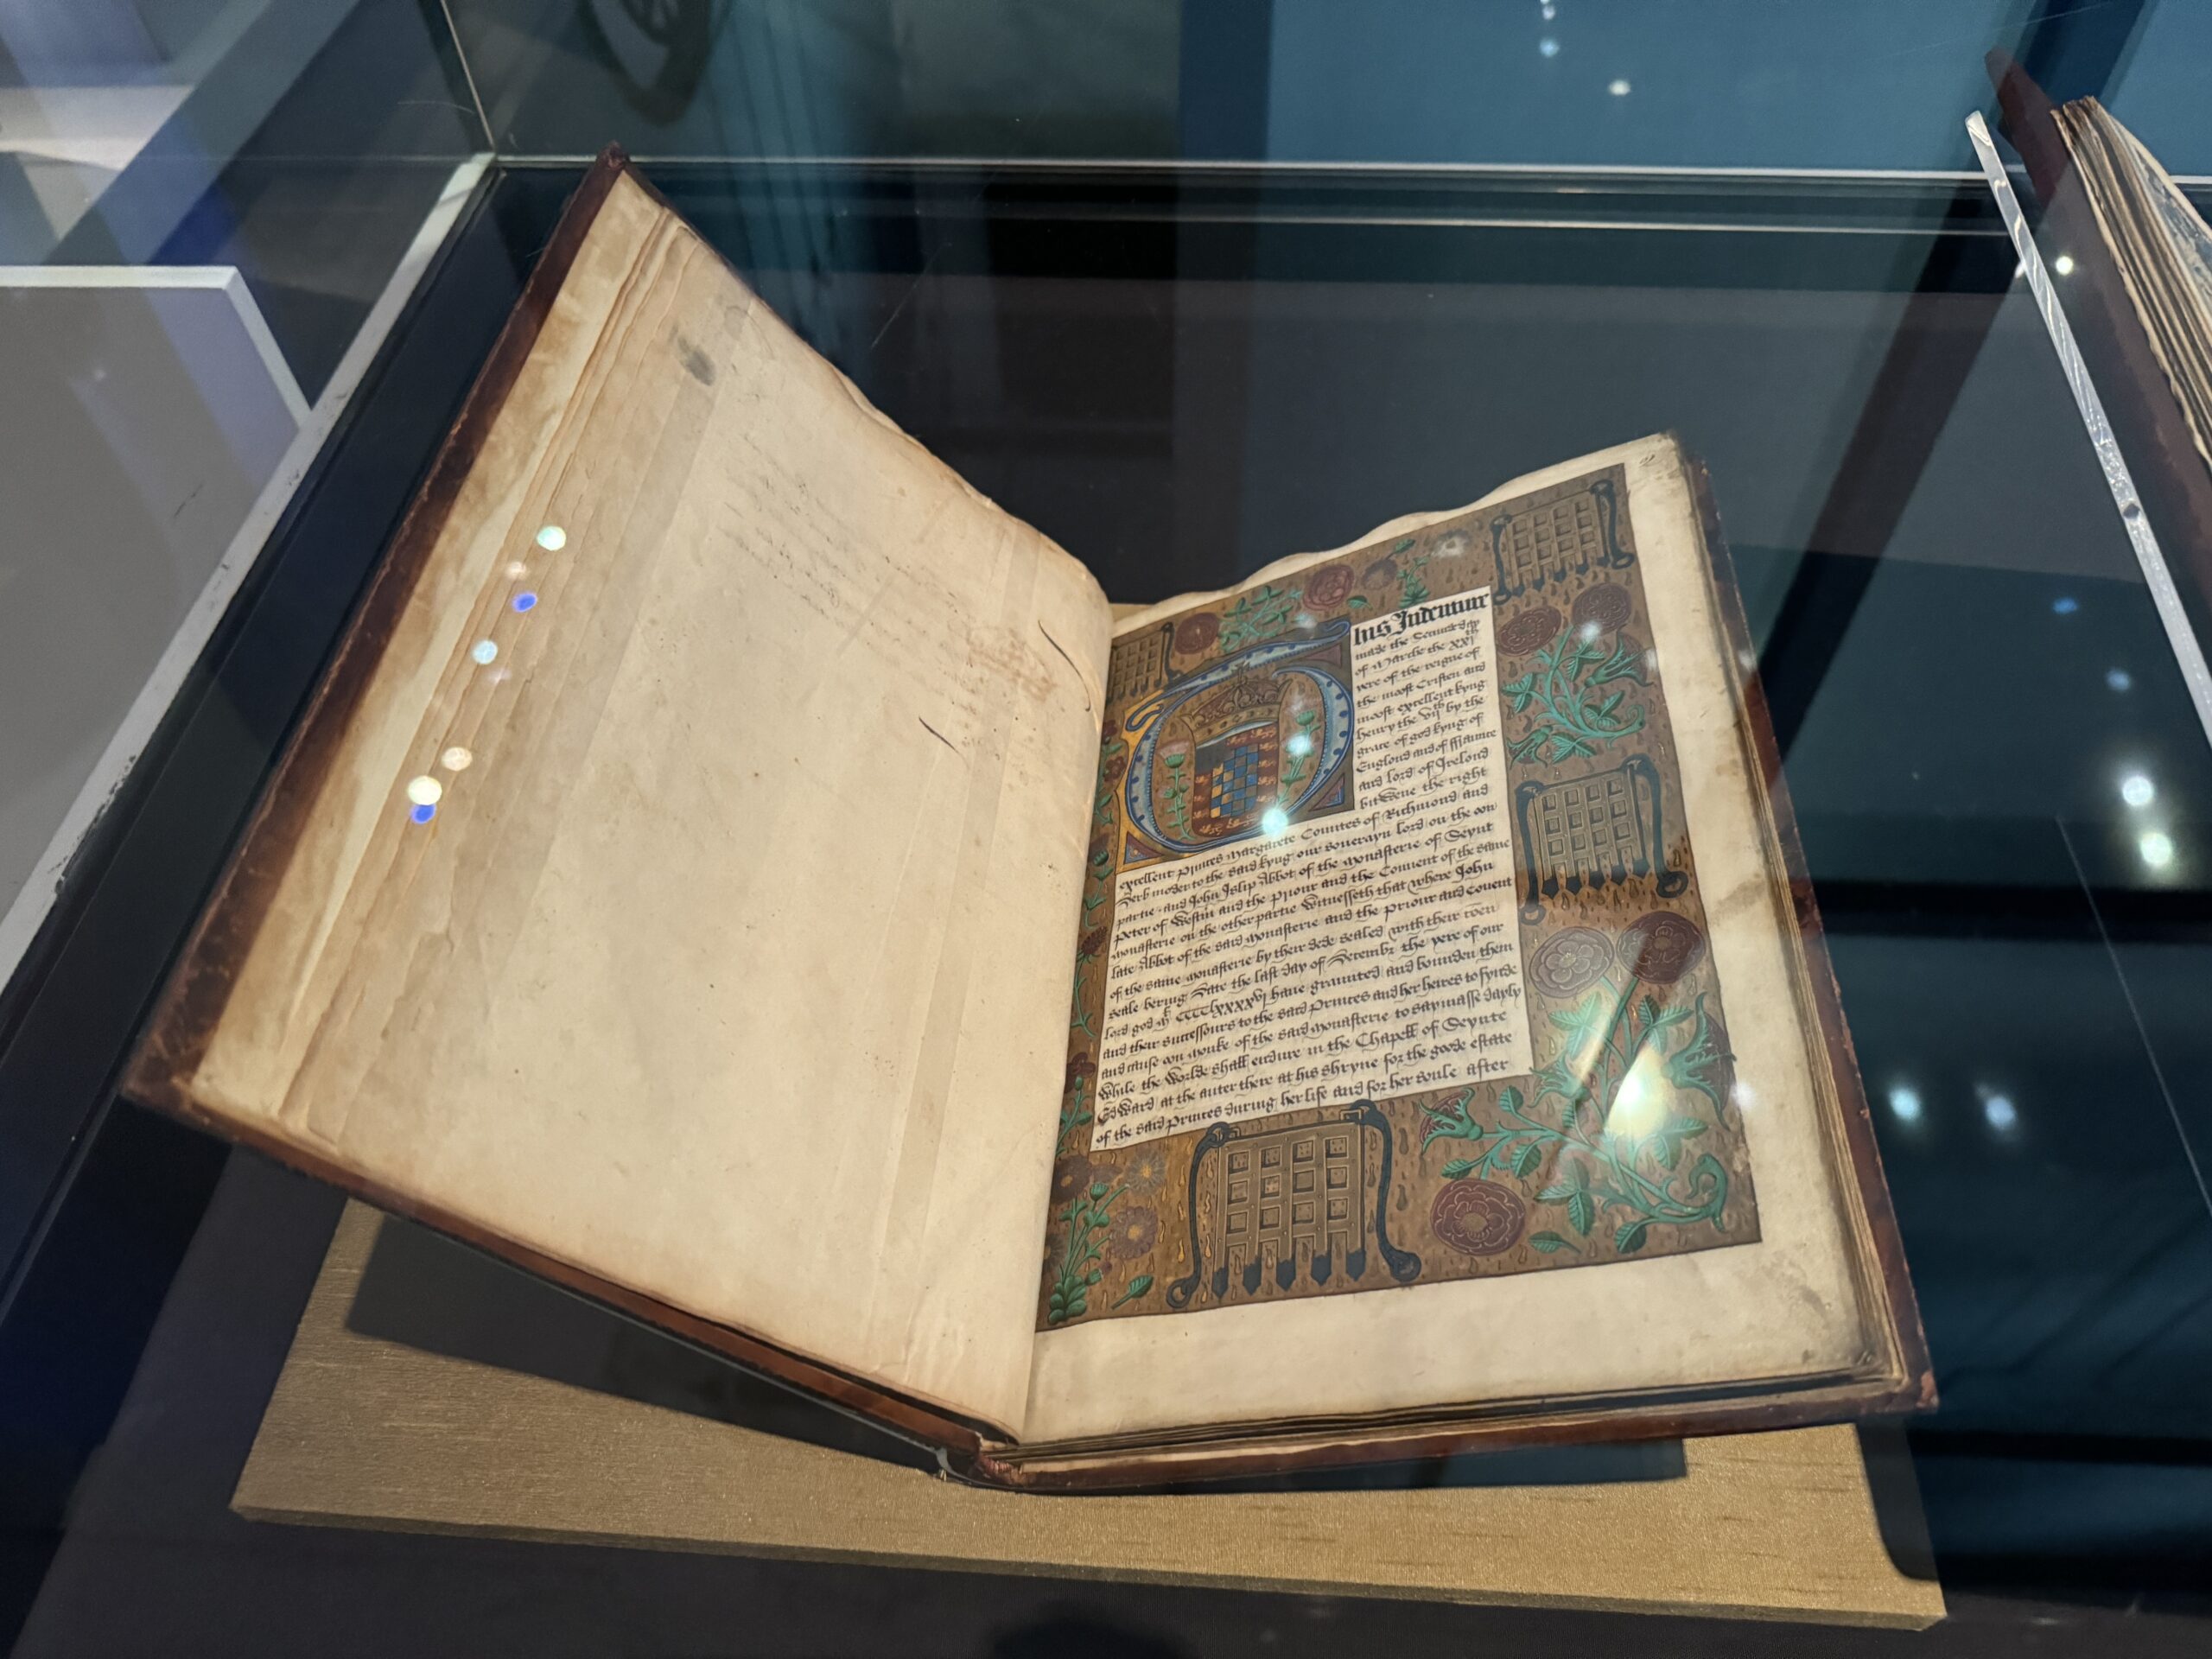 This Indenture
made the Secund day
of Marche the XXIth
yere of the reigne of
the moost Cristen and
moost excellent kyng
henry the viith by the
grace of god kyng of
England and of ffraunce
and lord of Jrelond
bitwene the right
excellent Princes Margarete Countes of Richmond and
Derb moder to the said kyng our souerayn lord on the oon
partie and John Jslip Abbot of the monasterie of Seynt
Peter of Westm and the Priour and the Couent of the same
monasterie on the other partie Witnesseth that where John
late Abbot of the said monasterie and the Priour and Couent
of the same monasterie by their dede sealed with their coen
seale bering Date the last day of Decembr the yere of our
lord god M CCCClxxxxvj haue graunted and bounden them
and their successours to the said Princes and her heires to fynde
and cause oon monke of the said monasterie to say masse dayly
While the Worlde shall endure in the Chapell of Seynte
Edward at the auter there at his shryne for the goode estate
of the said Princes during her life and for her soule after